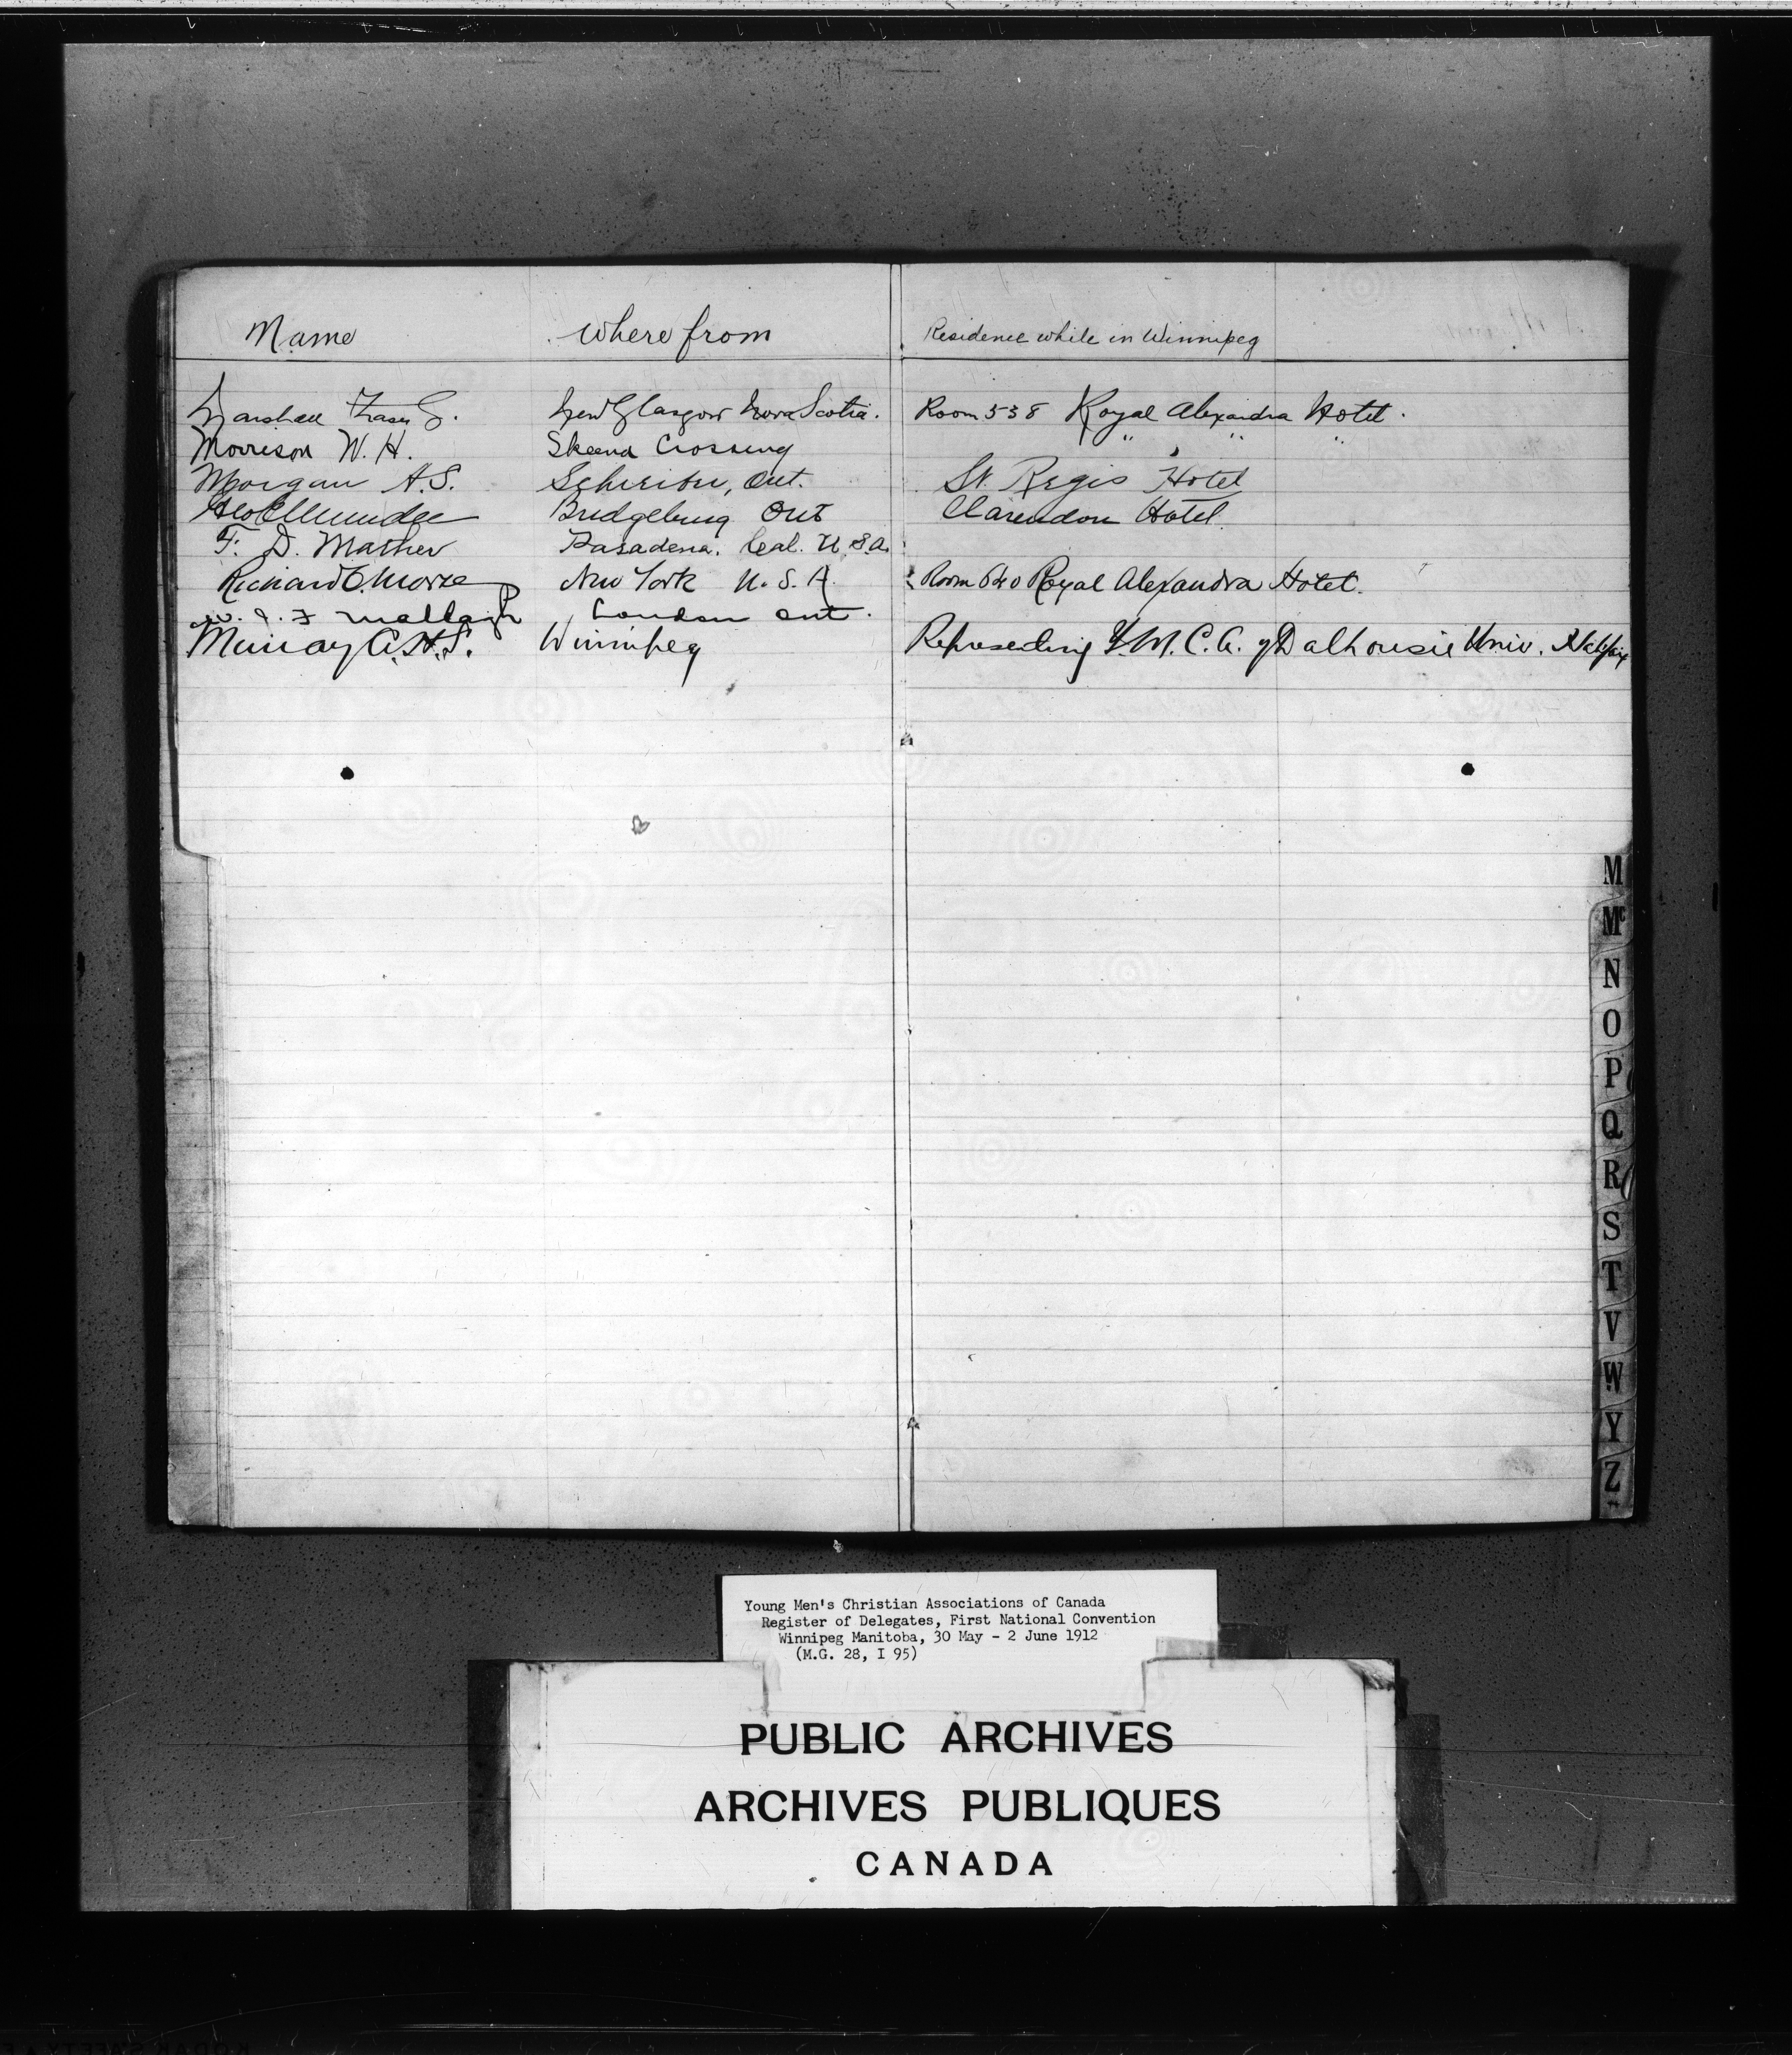 Name Where from Residence while in Winnipeg
Marshall Fraser G. New Glasgow Nova Scotia. Room 538 Royal Alexandra Hotel.
Morrison W. H. Skeena Crossing " " "
Morgan A. S. Schreiber, Ont. St. Regis Hotel
Geo C Mundee Bridgeburg Ont Clarendon Hotel.
F. D. Mather Pasadena. Cal. U.S.A.
Richard C. Morse New York U.S.A. Room 640 Royal Alexandra Hotel.
London Ont.
Murray A. H. S. Winnipeg Representing Y.M.C.A. of Dalhousie Univ. Halifax
M
Mc
N
O
P
Q
R
S
T
V
W
Y
Z
Young Men's Christian Associations of Canada
Register of Delegates, First National Convention
Winnipeg Manitoba, 30 May - 2 June 1912
(M.G. 28, I 95)
PUBLIC ARCHIVES
ARCHIVES PUBLIQUES
CANADA